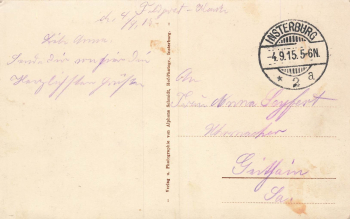 Feldpost-Karte
4/9.15.
Liebe Anna.
Sende dir von hier den
Herzlichsten Grüßen
INSTERBURG
-4.9.15.5-6N.
* 2 a
Verlag u. Photographie von Alphons Schmidt, Hofatelier, Insterburg.
An
Frau Anna Seyfert
Uhrmacher
Geithain
Sa